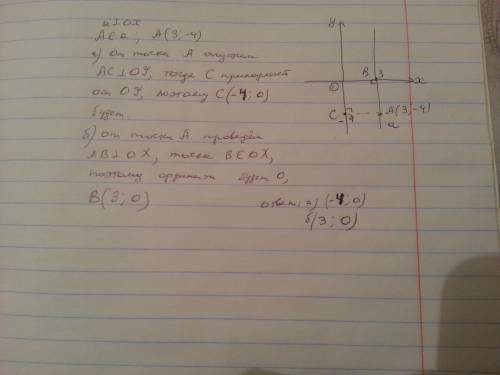 a⊥OX
A∈a; A(3;-4)
а) От точки A опустим
AC⊥OY, тогда C принадлежит
оси OY, поэтому C(-4;0)
будет
б) от точки A проведём
AB⊥OX, точка B∈OX,
поэтому ордината будет 0,
B(3;0)
Ответ: а) (-4;0)
б(3;0)
y
B 3
O x
C -4 A(3;-4)
a